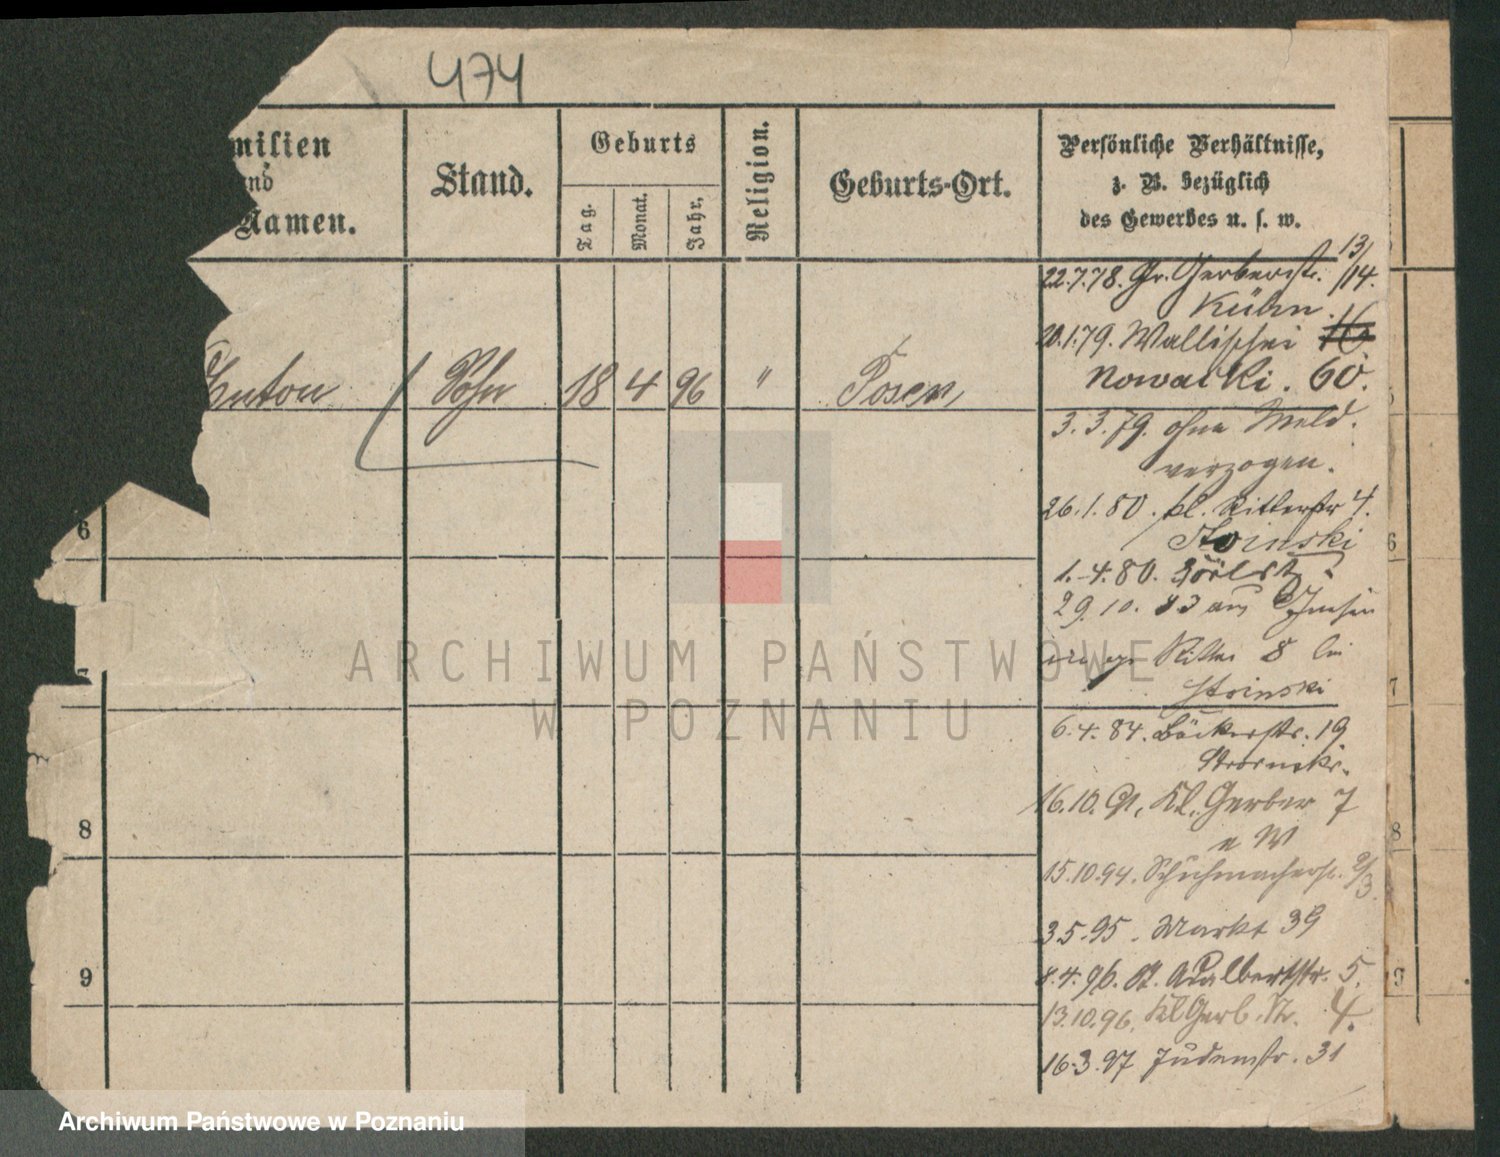 474
milien
und
Namen.
Stand.
Geburts
Tag.
Monat.
Jahr,
Religion.
Geburts-Ort.
Persönliche Verhältnisse,
z. B. bezüglich
des Gewerbes u. s. w.
22.7.78. Gr. Gerberstr. 13/14.
Kühn.
20.1.79. Wallischei 16
Nowacki. 60.
Anton
Sohn
18
4
96
"
Posen,
3.3.79. ohne Meld.
verzogen.
26.1.80. kl. Ritterstr 4.
Stoinski
1.4.80.
29.10.83 aus Gnesen
Ritter 8 bei
Stoinski
6.4.84. Bäckerstr. 19
16.10.91. Kl. Gerber 7
15.10.94. Schuhmacherstr. 2/3.
3.5.95. Markt 39
8.4.96. St. Adalbertstr. 5.
13.10.96. Kl Gerb. Str. 4.
16.3.97 Judenstr. 31
6
7
8
9
6
7
8
9
ARCHIWUM PAŃSTWOWE
W POZNANIU
Archiwum Państwowe w Poznaniu